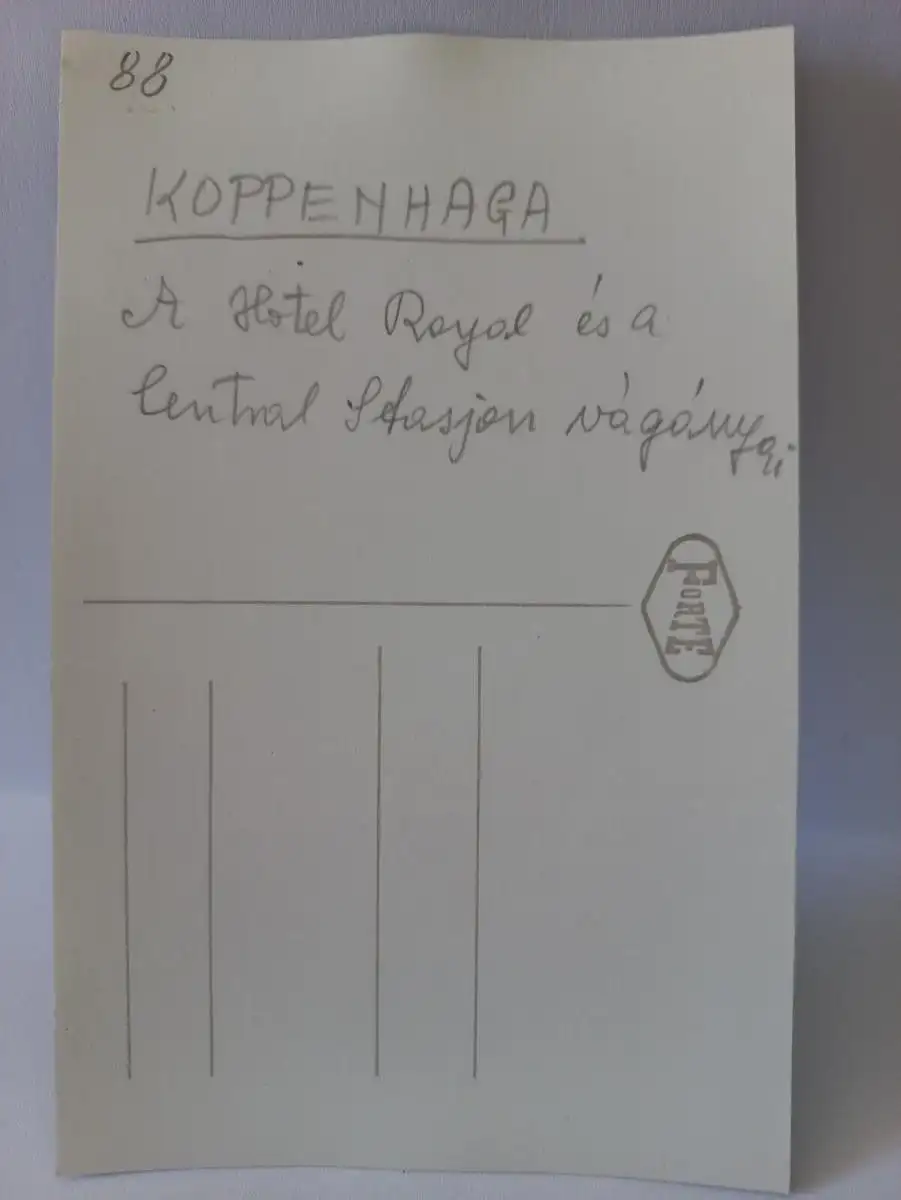 88
KOPPENHAGA
A Hotel Royal és a
Central Stasjon vágányai
FORTE